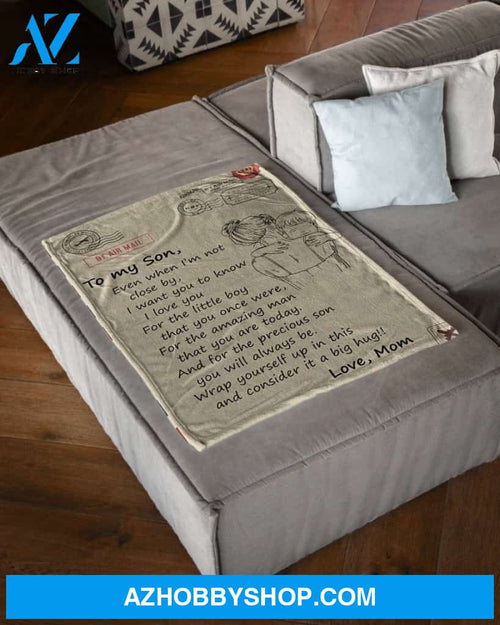 AZ
HOBBY SHOP
BY AIR MAIL
To my Son,
Even when I'm not
close by,
I want you to know
I love you
For the little boy
that you once were,
For the amazing man
that you are today.
And for the precious son
you will always be.
Wrap yourself up in this
and consider it a big hug!!
Love, Mom
AZHOBBYSHOP.COM